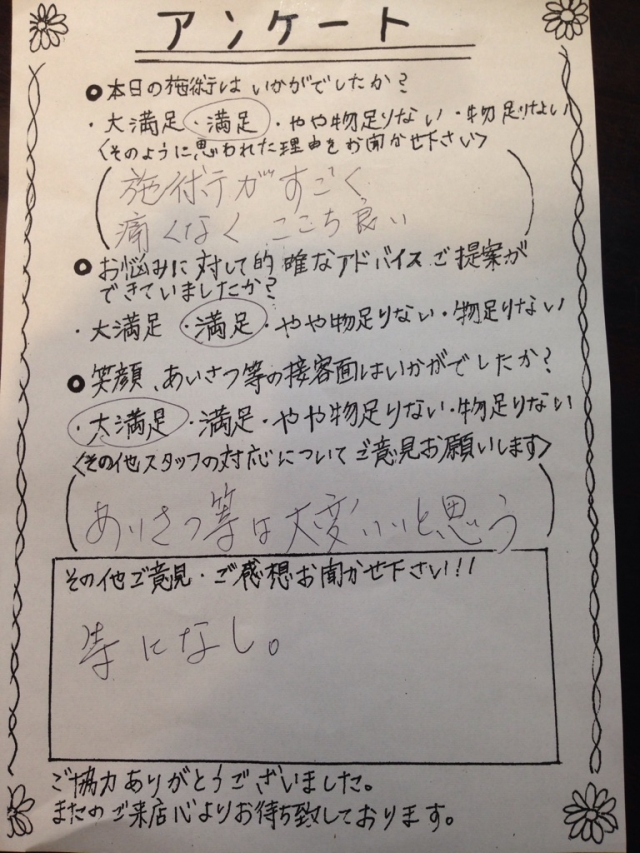 アンケート
●本日の施術はいかがでしたか?
・大満足・満足・やや物足りない・物足りない
<そのように思われた理由をお聞かせ下さい>
(施術がすごく
痛くなくここち良い)
●お悩みに対して的確なアドバイスご提案が
できていましたか?
・大満足・満足・やや物足りない・物足りない
●笑顔、あいさつ等の接客面はいかがでしたか?
・大満足・満足・やや物足りない・物足りない
<その他スタッフの対応についてご意見お願いします>
(あいさつ等は大変いいと思う)
その他ご意見・ご感想お聞かせ下さい!!!
特になし。
ご協力ありがとうございました。
またのご来店心よりお待ち致しております。